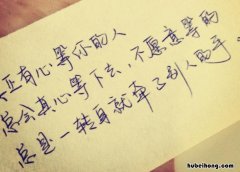 真正有心等你的人
总会真心等下去、不愿意等的
总是一转身就牵了别人的手
hubeihong.com